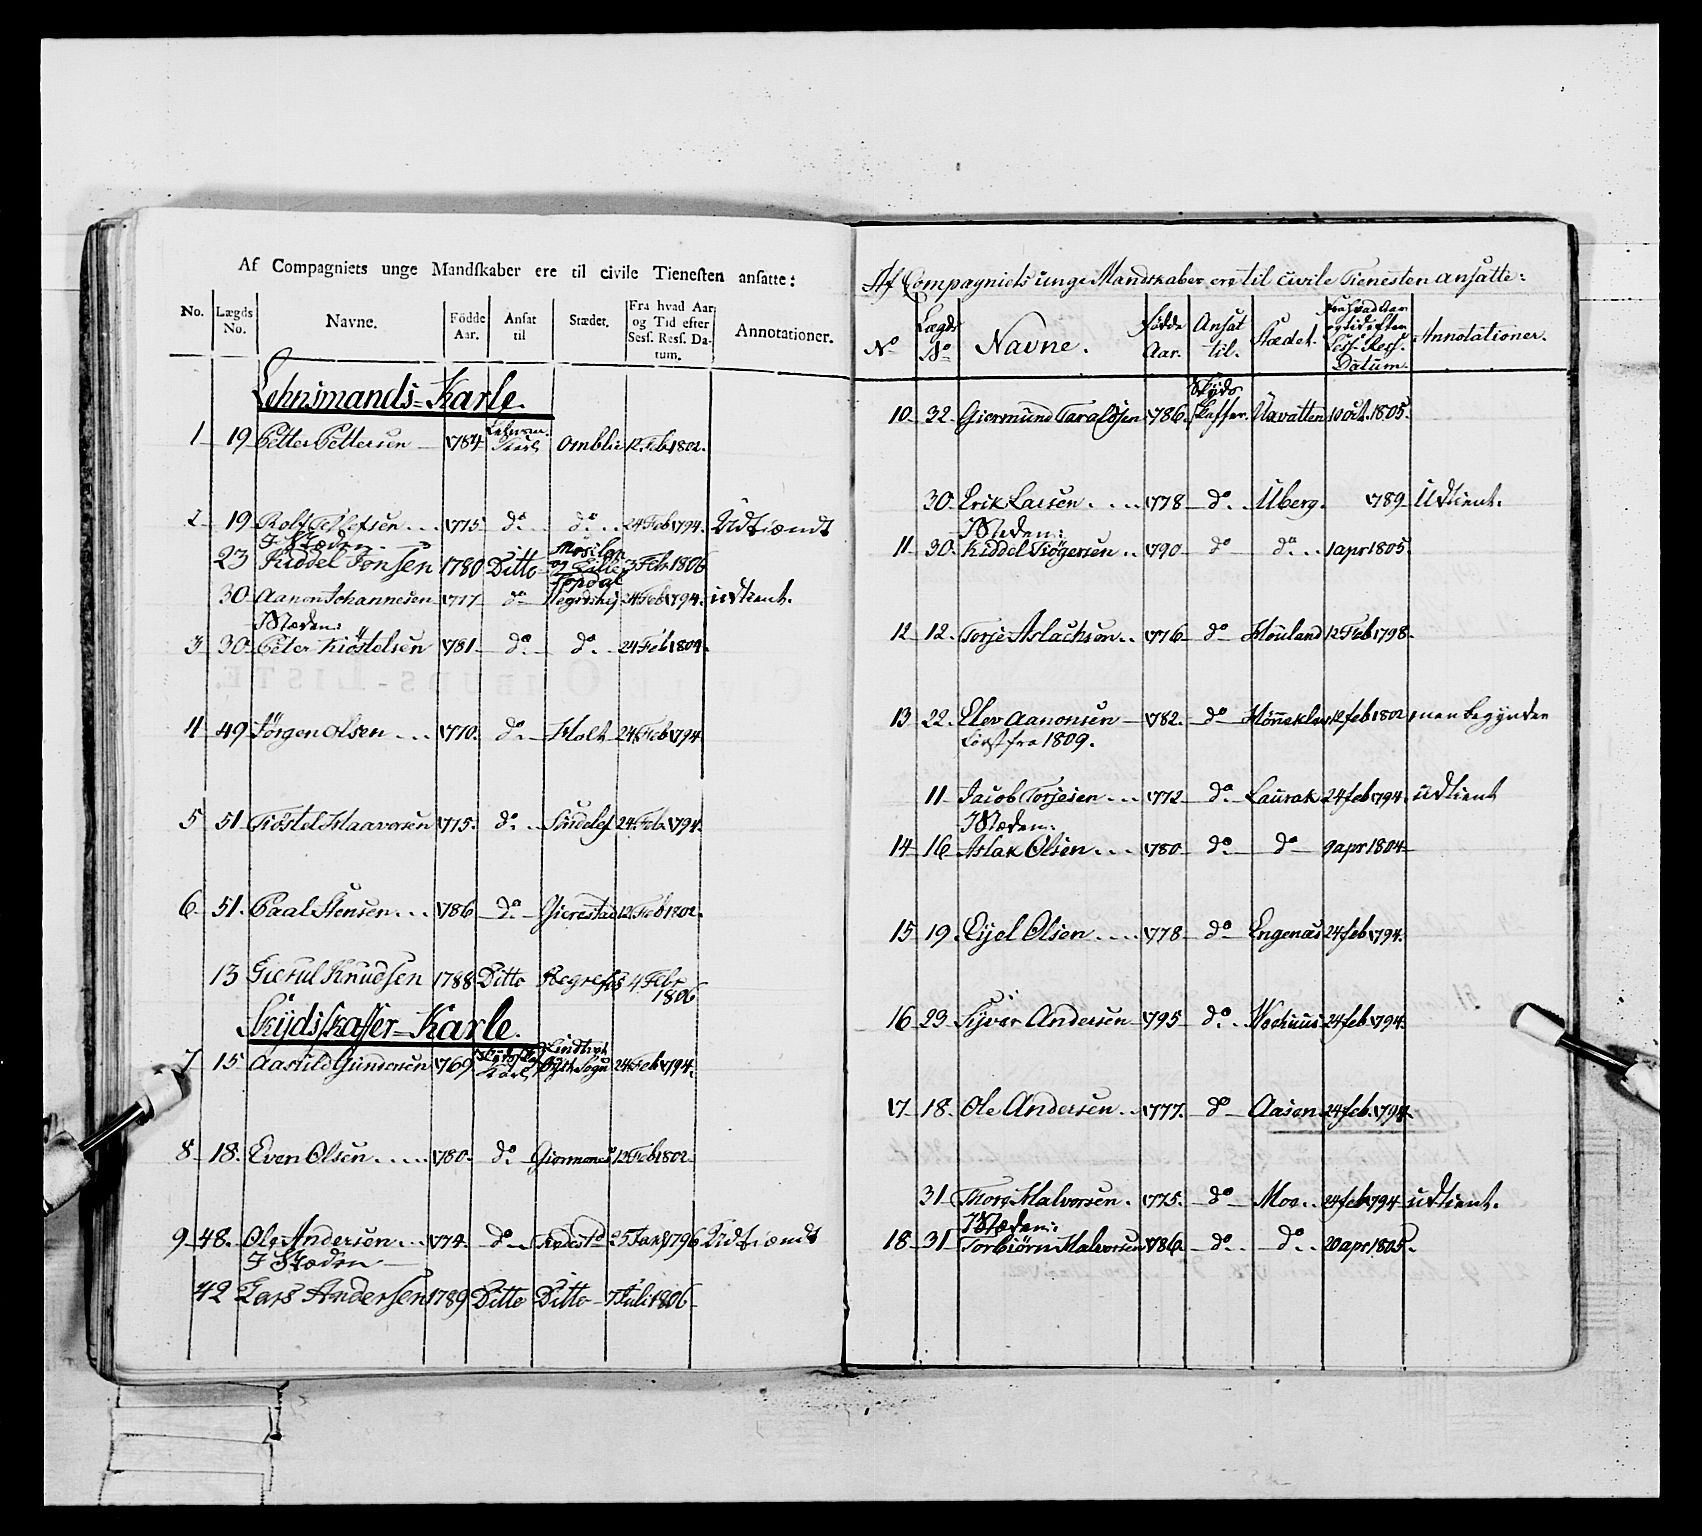 Af Compagniets unge Mandſkaber ere til civile Tieneſten anſatte:
No. Lægds No. Navne. Födde Aar. Anſat til Stædet. Fra hvad Aar og Tid efter Sesſ. Reſſ. Datum. Annotationer.
Lehnsmands-Karle.
1 19 Petter Pettersen 1784 Lehnsm. Karl Omblie 12 Feb 1802.
2 19 Rolf Tellefsen 1775 do do 24 Feb 1794. Udtiendt
I Stæden
23 Kiddel Jonsen 1780 Ditto og Lille Topdal 3 Feb 1806
30 Aanon Johannesen 1777 do 24 Feb 1794. udtient.
I Stæden:
3 30 Peter Kiöstelsen 1781 do do 24 Feb 1804.
4 49 Jörgen Olsen 1770. do Holt 24 Feb 1794
5 51. Kiöstel Haavorsen 1775. do Söndelef 24 Feb. 1794.
6 51. Paal Stensen 1786 do Gierestad 12 Feb 1802.
13 Gierul Knudsen 1788 Ditto 4 Febr 1806
Skydsskaffer-Karle.
7 15 Aasuld Gundersen 1769 24 Feb 1794.
8 18. Even Olsen 1780. do 12 Feb 1802.
9 48. Ole Andersen 1774. do 25 Jan 1796 Udtiendt
I Stæden
42 Lars Andersen 1789 Ditto Ditto 7 Juli 1806
Af Compagniets unge Mandskaber ere til civile Tienesten ansatte:
No Lægds No Navne. Födde Aar. Ansat til. Stædet. Fra hvad Aar og tid efter Sess. Ress. Datum. Annotationer.
10 32. Giermund Taraldsen 1786. Skyds Skaffer. Uavatten 10 oct. 1805.
30. Erik Larsen 1778 do Uberg. 1789 Udtient.
I Stæden:
11 30. Kiddel Tiögersen 1790 do do 1 apr 1805
12 12. Torje Aslachsen 1776 do Houland 12 Feb 1798.
13 22. Elev Aanonsen 1782. do 12 feb 1802 men begynder
först fra 1809.
11 Jacob Torjesen 1772 do Laurak 24 feb 1794. udtient
I Stæden:
14 16 Aslak Olsen 1780 do do 9 apr 1804
15 19. Eijel Olsen 1778 do Engenæs 24 feb 1794.
16 23 Syver Andersen 1795 do 24 feb 1794.
17. 18. Ole Andersen 1777. do Aasen 24 feb. 1794.
31 Thore Halvorsen. 1775. do Moe 24 feb 1794 udtient.
I Stæden:
18 31 Torbiörn Halvorsen 1786. do do 20 apr 1805.